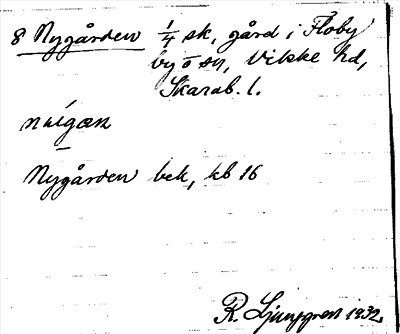 8 Nygården 1/4 sk, gård i Floby
by o sn, Vilske hd,
Skarab. l.
Nygården bek, kb 16
R. Ljunggren 1932.